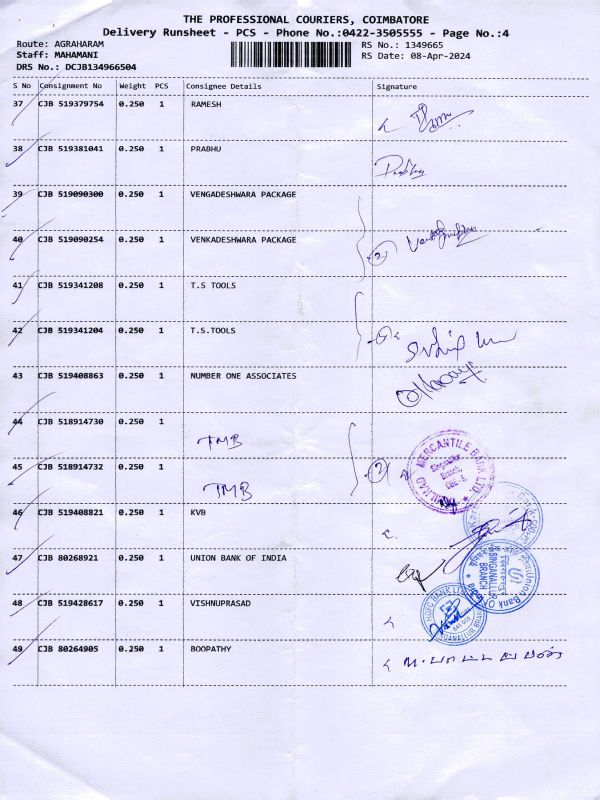 THE PROFESSIONAL COURIERS, COIMBATORE
Delivery Runsheet - PCS - Phone No.:0422-3505555 - Page No.:4
Route: AGRAHARAM
Staff: MAHAMANI
DRS No.: DCJB134966504
RS No.: 1349665
RS Date: 08-Apr-2024
S No Consignment No Weight PCS Consignee Details Signature
37 CJB 519379754 0.250 1 RAMESH
38 CJB 519381041 0.250 1 PRABHU
Prabhu
39 CJB 519090300 0.250 1 VENGADESHWARA PACKAGE
40 CJB 519090254 0.250 1 VENKADESHWARA PACKAGE
2
41 CJB 519341208 0.250 1 T.S TOOLS
42 CJB 519341204 0.250 1 T.S.TOOLS
43 CJB 519408863 0.250 1 NUMBER ONE ASSOCIATES
44 CJB 518914730 0.250 1 TMB
45 CJB 518914732 0.250 1 TMB
2
MERCANTILE BANK LTD.
Singanallur
Branch
46 CJB 519408821 0.250 1 KVB
47 CJB 80268921 0.250 1 UNION BANK OF INDIA
Union Bank Of India
SINGANALLUR
BRANCH
48 CJB 519428617 0.250 1 VISHNUPRASAD
HDFC BANK LTD
49 CJB 80264905 0.250 1 BOOPATHY